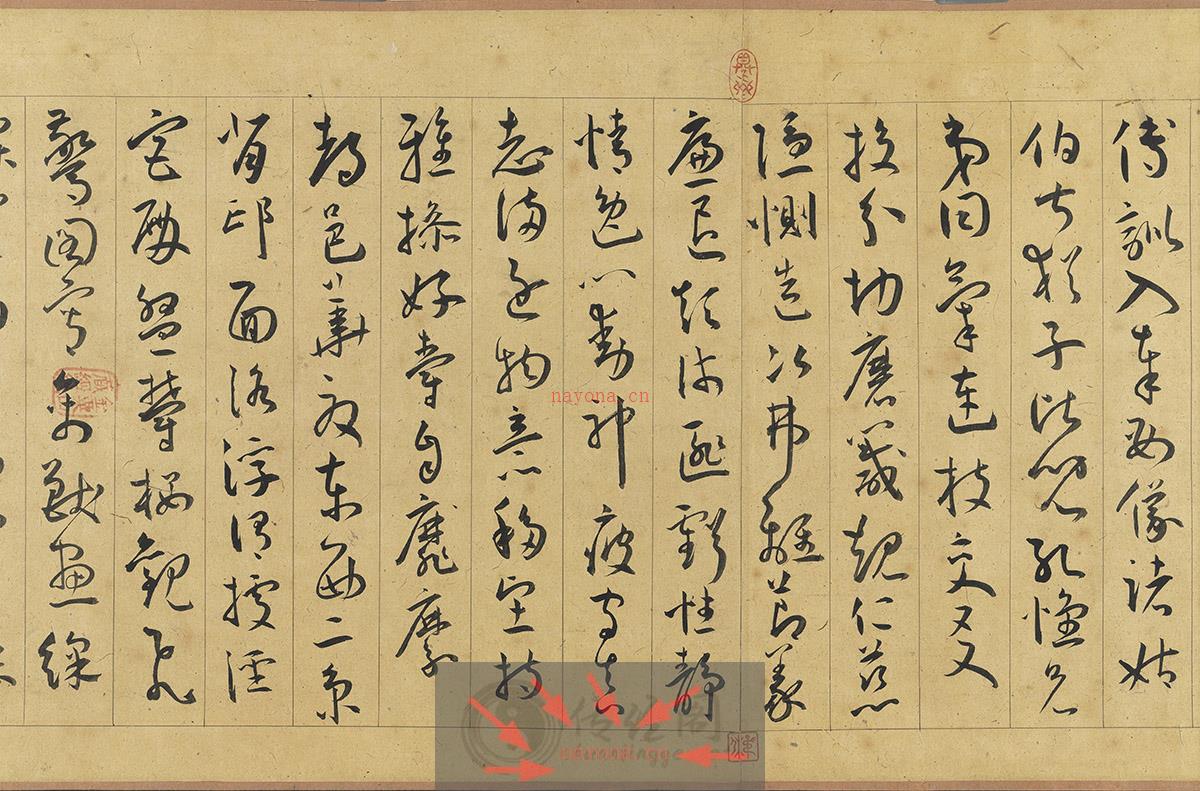 傅訓入奉母儀諸姑
伯叔猶子比兒孔懷兄
弟同氣連枝交友
投分切磨箴規仁慈
隱惻造次弗離節義
廉退顛沛匪虧性靜
情逸心動神疲守真
志滿逐物意移堅持
雅操好爵自縻
都邑華夏東西二京
背邙面洛浮渭據涇
宮殿盤鬱樓觀飛
驚圖寫禽獸畫綵
nayona.cn